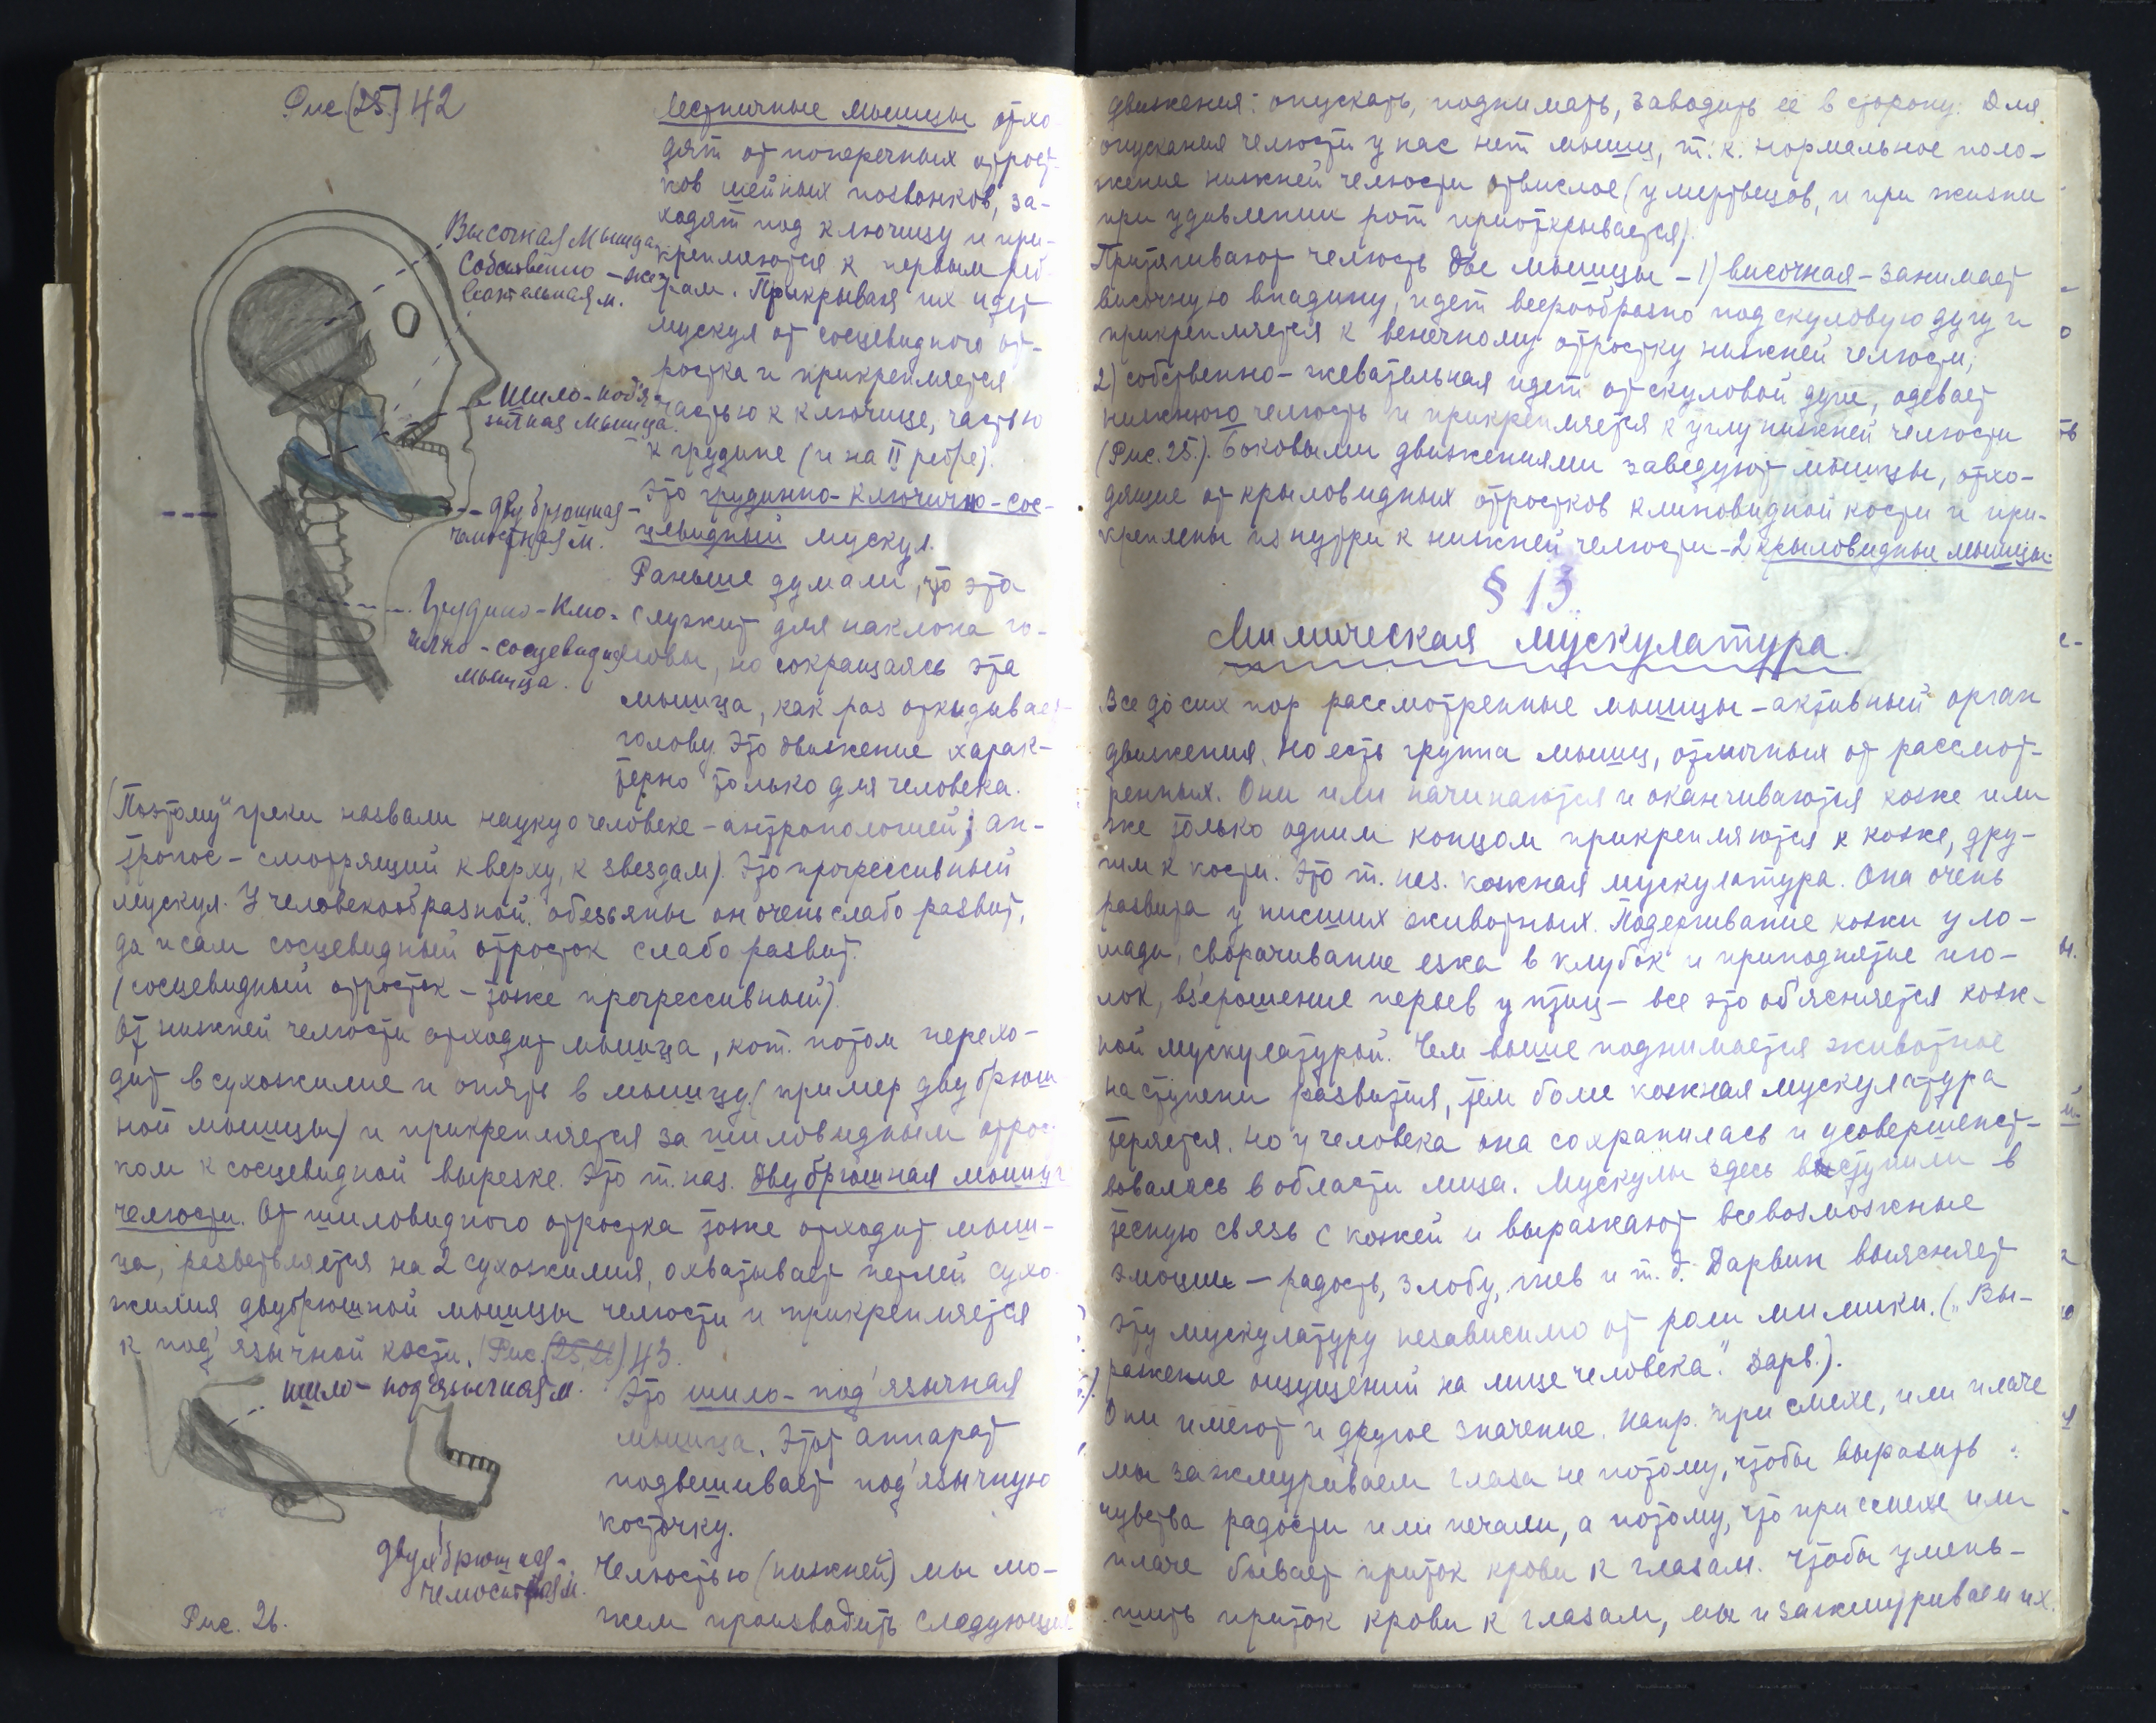 Рис. (25.) 42
Лестничные мышцы отхо-
дят от поперечных отрост-
ков шейных позвонков, за-
ходят под ключицу и при-
крепляются к первым реб-
рам. Прикрывая их идет
мускул от сосцевидного от-
ростка и прикрепляется
частью к ключице, частью
к грудине (и на II ребре).
Это грудинно-ключично-сос-
цевидный мускул.
Раньше думали, что эта
служит для наклона го-
ловы, но сокращаясь эта
мышца, как раз откидывает
голову. Это движение харак-
терно только для человека.
Височная Мышца
Собственно-же-
вательная м.
Шило-под'я-
зычная мышца.
двубрюшная-
челюстная м.
Грудино-Клю-
чично-сосцевидная
мышца.
(Поэтому греки назвали науку о человеке - антропологией; ан-
тропос - смотрящий кверху, к звездам). Это прогрессивный
мускул. У человекообразной обезьяны он очень слабо развит,
да и сам сосцевидный отросток слабо развит.
(сосцевидный отросток - тоже прогрессивный).
От нижней челюсти отходит мышца, кот. потом перехо-
дит в сухожилие и опять в мышцу (пример двубрюш-
ной мышцы) и прикрепляется за шиловидным отрост-
ком к сосцевидной вырезке. Это т. наз. двубрюшная мышца
челюсти. От шиловидного отростка тоже отходит мыш-
ца, разветвляется на 2 сухожилия, охватывает петлей сухо-
жилия двубрюшной мышцы челюсти и прикрепляется
к под'язычной кости. (Рис. (25, 26) 43.
шило-под'язычная м.
Это шило-под'язычная
мышца. Этот аппарат
подвешивает под'язычную
косточку.
Челюстью (нижней) мы мо-
жем производить следующие
двухбрюшная-
челюстная м.
Рис. 26.
движения: опускать, поднимать, заводить ее в сторону. Для
опускания челюсти у нас нет мышц, т. к. нормальное поло-
жение нижней челюсти отвислое (у мертвецов, и при жизни
при удивлении рот приоткрывается).
Притягивают челюсть две мышцы - 1) височная - занимает
височную впадину, идет веерообразно под скуловую дугу и
прикрепляется к венечному отростку нижней челюсти;
2) собственно-жевательная идет от скуловой дуги, одевает
нижнюю челюсть и прикрепляется к углу нижней челюсти
(Рис. 25.). Боковыми движениями заведуют мышцы, отхо-
дящие от крыловидных отростков клиновидной кости и при-
креплены изнутри к нижней челюсти - 2 крыловидные мышцы.
§ 13.
Мимическая мускулатура.
Все до сих пор рассмотренные мышцы - активный орган
движения. Но есть группа мышц, отличных от рассмот-
ренных. Они или начинаются и оканчиваются коже или
же только одним концом прикрепляются к коже, дру-
гим к кости. Это т. наз. кожная мускулатура. Она очень
развита у низших животных. Подергивание кожи у ло-
шади, сворачивание ежа в клубок и приподнятие иго-
лок, вз'ерошение перьев у птиц - все это об'ясняется кож-
ной мускулатурой. Чем выше поднимается животное
на ступени развития, тем боле кожная мускулатура
теряется. Но у человека она сохранилась и усовершенст-
вовалась в области лица. Мускулы здесь вступили в
тесную связь с кожей и выражают всевозможные
эмоции - радость, злобу, гнев и т. д. Дарвин выясняет
эту мускулатуру независимо от роли мимики. („Вы-
ражение ощущений на лице человека." Дарв.).
Они имеют и другое значение. Напр. при смехе, или плаче
мы зажмуриваем глаза не потому, чтобы выразить
чувства радости или печали, а потому, что при смехе или
плаче бывает приток крови к глазам. Чтобы умень-
шить приток крови к глазам, мы и зажмуриваем их.